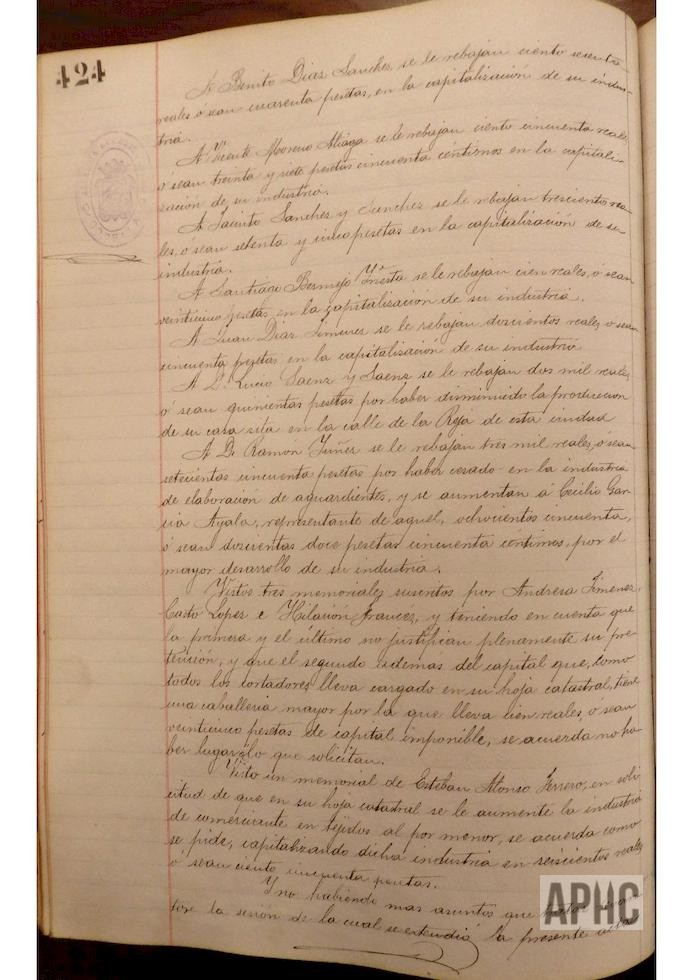 424
A Benito Diaz Sanchez se le rebajan ciento sesenta
reales ó sean cuarenta pesetas, en la capitalización de su indus-
tria.
A Vicente Moreno Aliaga se le rebajan ciento cincuenta reales,
ó sean treinta y siete pesetas cincuenta céntimos en la capitali-
zación de su industria.
A Jacinto Sanchez y Sanchez se le rebajan trescientos rea-
les, ó sean setenta y cinco pesetas en la capitalización de su
industria.
A Santiago Bermejo Yniesta se le rebajan cien reales, ó sean
veinticinco pesetas en la capitalización de su industria.
A Juan Diaz Jimenez se le rebajan doscientos reales, ó sean
cincuenta pesetas en la capitalización de su industria
A Dn. Lucio Saenz y Saenz se le rebajan dos mil reales,
ó sean quinientas pesetas por haber disminuido la produccion
de su casa sita en la calle de la Reja de esta ciudad
A Dn Ramón Yuñez se le rebajan tres mil reales, ó sean
setecientas cincuenta pesetas por haber cesado en la industria
de elaboración de aguardientes, y se aumentan á Cecilio Gar-
cia Ayala, representante de aquel, ochocientos cincuenta,
ó sean doscientas doce pesetas cincuenta céntimos, por el
mayor desarrollo de su industria.
Vistos tres memoriales suscritos por Andresa Jimenez,
Casto Lopez e Hilarión francés, y teniendo en cuenta que
la primera y el último no justifican plenamente su pre-
tensión, y que el segundo ademas del capital que, como
todos los cortadores lleva cargado en su hoja catastral, tiene
una caballeria mayor por la que lleva cien reales, o sean
veinticinco pesetas de capital imponible, se acuerda no ha-
ber lugar á lo que solicitan.
Visto un memorial de Esteban Alonso Ferrero, en soli-
citud de que en su hoja catastral se le aumente la industria
de comerciante en tejidos al por menor, se acuerda como
se pide, capitalizando dicha industria en seiscientos reales
o sean ciento cincuenta pesetas.
Y no habiendo mas asuntos que
tóse la sesión de la cual se extendió la presente acta
APHC